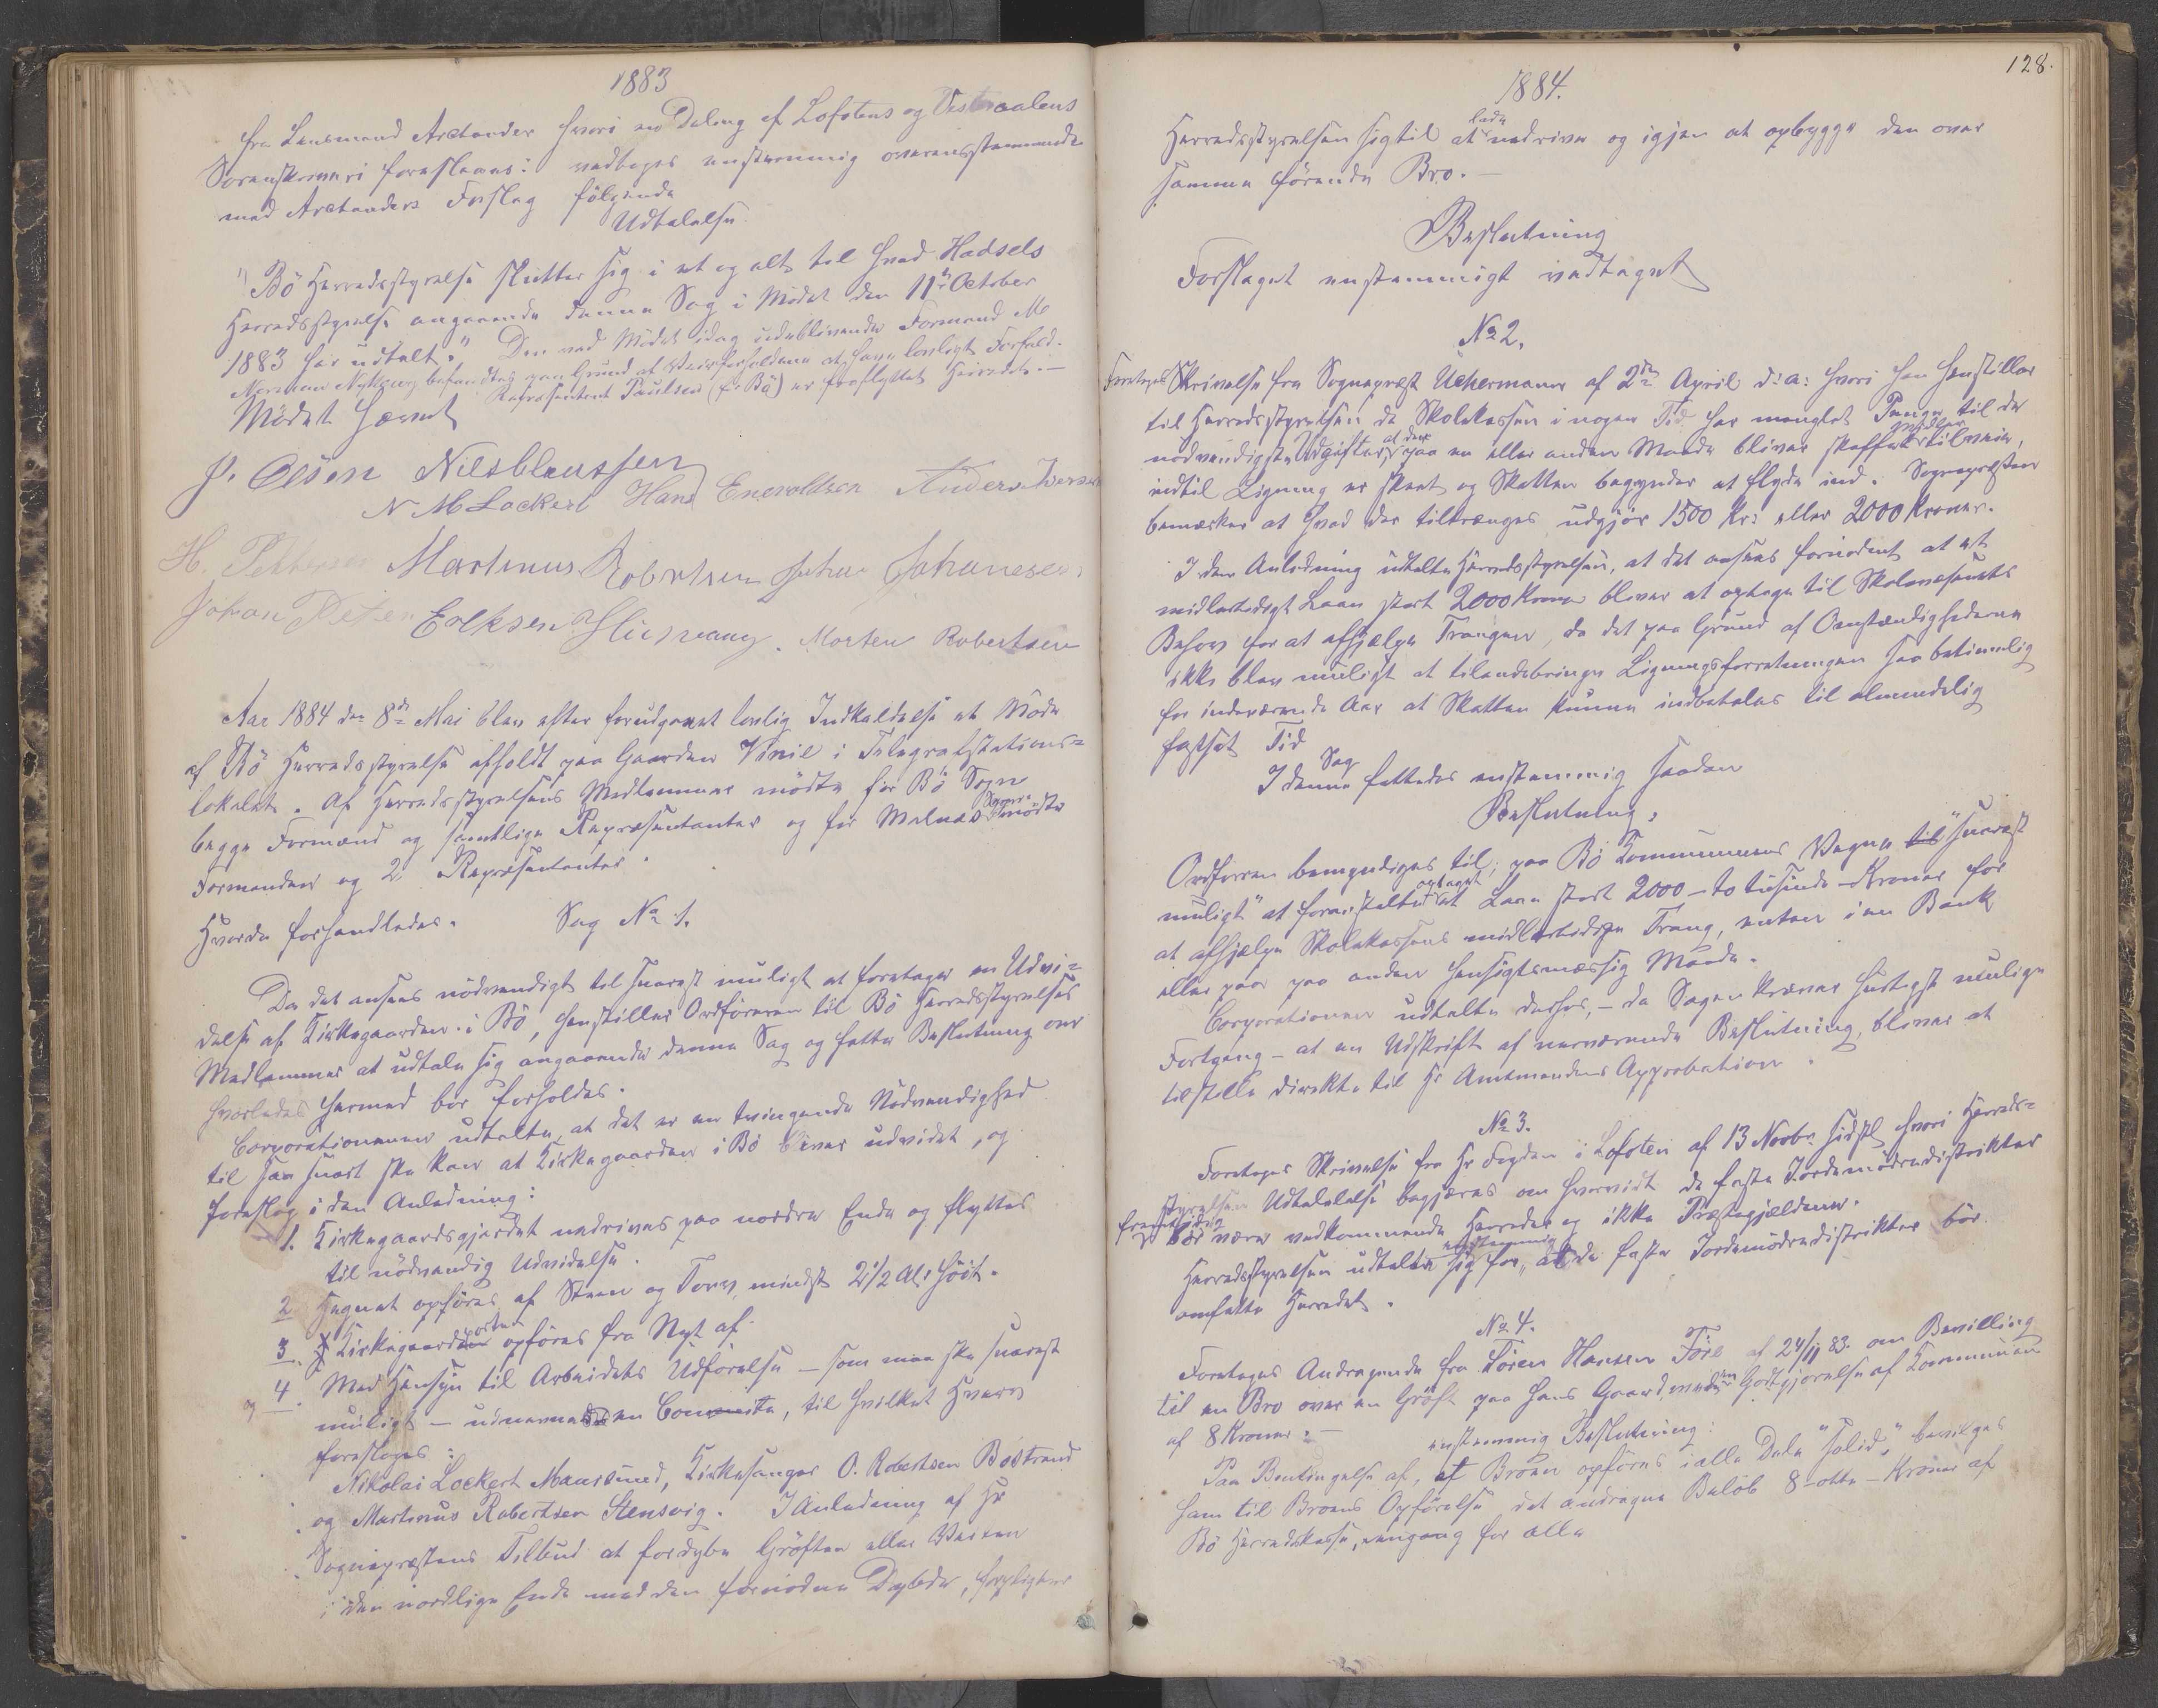 1883
fra Lensmand Arctander hvori en Deling af Lofotens og Vesteraalens
Sorenskriveri foreslaaes: vedtoges enstemmig overensstemmende
med Arctanders Forslag følgende
Udtalelse.
"Bö Herredsstyrelse slutter sig i et og alt til hvad Hadsels
Herredsstyrelse angaaende denne Sag i Mödet den 11te October
1883 har udtalt." Den ved Mödet idag udeblivende Formand M
Norman Nykvaag befandtes paa Grund af Veirforholdene at have lovligt Forfald.
Repræsentant Paulsen (f. Bö) er fraflyttet Herredet. —
Mödet hævet
P. Olsen Nils Claussen
N M Lockert Hans Enevoldsen Anders Iversen
H. Pettersen Martinus Robertsen Johan Johanesen
Johan Petter Eriksen Morten Robertsen
Aar 1884 den 8de Mai blev efter forudgaaet lovlig Indkaldelse et Möde
af Bö Herredsstyrelse afholdt paa Gaarden Vinie i Telegrafstations=
lokalet. Af Herredsstyrelsens Medlemmer mödte for Bö Sogn
begge Formænd og samtlige Repræsentanter og for Malnes Sogn mödte
Formanden og 2 Repræsentanter.
Hvorda forhandledes. Sag No 1.
Da det ansees nödvendigt til snarest muligt at foretages en Udvi=
delse af Kirkegaarden i Bö, henstiller Ordföreren til Bö Herredsstyrelses
Medlemmer at udtale sig angaaende denne Sag og fatte Beslutning om
hvorledes hermed bör forholdes.
Corporationen udtalte, at det er en tvingende Nödvendighed
til saa snart ske kan at Kirkegaarden i Bö bliver udvidet, og
foreslog i den Anledning:
1. Kirkegaardsgjerdet nedrives paa nordre Ende og flyttes
til nödvendig Udvidelse.
2 Hegnet opföres af Steen og Torv, mindst 2 1/2 Al. höit.
3. Kirkegaardsporten opföres fra Nyt af.
og 4. Med Hensyn til Arbeidets Udförelse – som maa ske snarest
muligt – udnævnes en Comite, til hvilket Hverv
foreslages:
Nikolai Lockert Maursund, Kirkesanger O. Robertsen Böstrand
og Martinus Robertsen Stensvig. I Anledning af Hr
Sognepræstens Tilbud at fordybe Gröften eller Veiten
i den nordlige Ende med den fornödne Dybde, forpligter
128.
1884.
Herredsstyrelsen sig til at lade nedrive og igjen at opbygge den over
samme förende Bro. —
Beslutning
Forslaget enstemmigt vedtaget
No 2.
Foretoges Skrivelse fra Sognepræst Uchermann af 2den April d: a: hvori han henstiller
til Herredsstyrelsen, da Skolekassen i nogen Tid har manglet Penge til de
nödvendigste Udgifter, at der paa en eller anden Maade bliver skaffet Midler tilveie,
indtil Ligning er skeet og Skatten begynder at flyde ind. Sognepræsten
bemærker at hvad der tiltrænges udgjör 1500 Kr: eller 2000 Kroner.
I den Anledning udtalte Herredsstyrelsen, at det ansees fornödent at et
midlertidigt Laan stort 2000 Kroner bliver at optage til Skolevæsenets
Behov for at afhjælpe Trangen, da det paa Grund af Omstændighederne
ikke blev muligt at tilendebringe Ligningsforretningen saa betimelig
for indeværende Aar at Skatten kunne indbetales til almindelig
fastsat Tid
I denne Sag fattedes enstemmig saadan
Beslutning.
Ordföreren bemyndiges til, paa Bö Kommunens Vegne til "snarest
muligt" at foranstalte optaget et Laan stort 2000 – to tusinde – Kroner for
at afhjælpe Skolekassens midlertidige Trang, enten i en Bank
eller paa anden hensigtsmæssig Maade.
Corporationen udtalte derhos, – da Sagen kræver hurtigst mulige
Fortgang – at en Udskrift af nærværende Beslutning, bliver at
tilstille direkte til Hr Amtmandens Approbation.
No 3.
Foretoges Skrivelse fra Hr Fogden i Lofoten af 13 Novbr sidstl. hvori Herreds=
styrelsens Udtalelse begjæres om hvorvidt de faste Jordemödredistrikter
fremtidig bör være vedkommende Herreder og ikke Præstegjældene.
Herredsstyrelsen udtalte enstemmig sig for, at de faste Jordemödredistrikter bör
omfatte Herredet.
No 4.
Foretoges Andragende fra Sören Hansen Före af 24/11 83. om Bevilling
til en Bro over en Gröft paa hans Gaard, med en Godtgjörelse af Kommunen
af 8 Kroner. — enstemmig Beslutning:
Paa Betingelse af, at Broen opföres i alle Dele "solid," bevilges
ham til Broens Opförelse det andragne Belöb 8 – otte – Kroner af
Bö Herredskasse, engang for alle